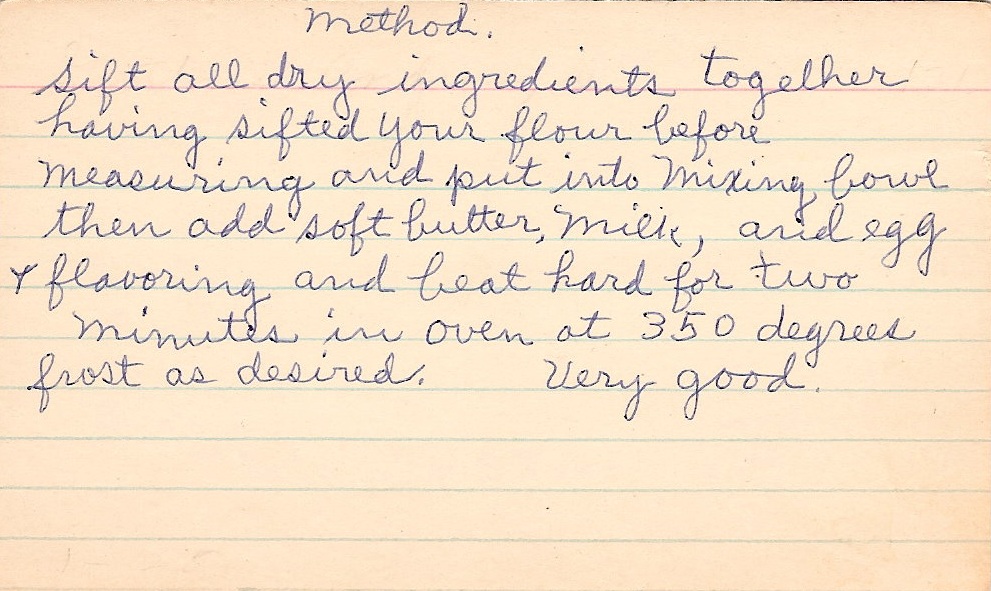 Method.
Sift all dry ingredients together
having sifted your flour before
measuring and put into mixing bowl
then add soft butter, milk, and egg
+ flavoring and beat hard for two
minutes in oven at 350 degrees
frost as desired. Very good.